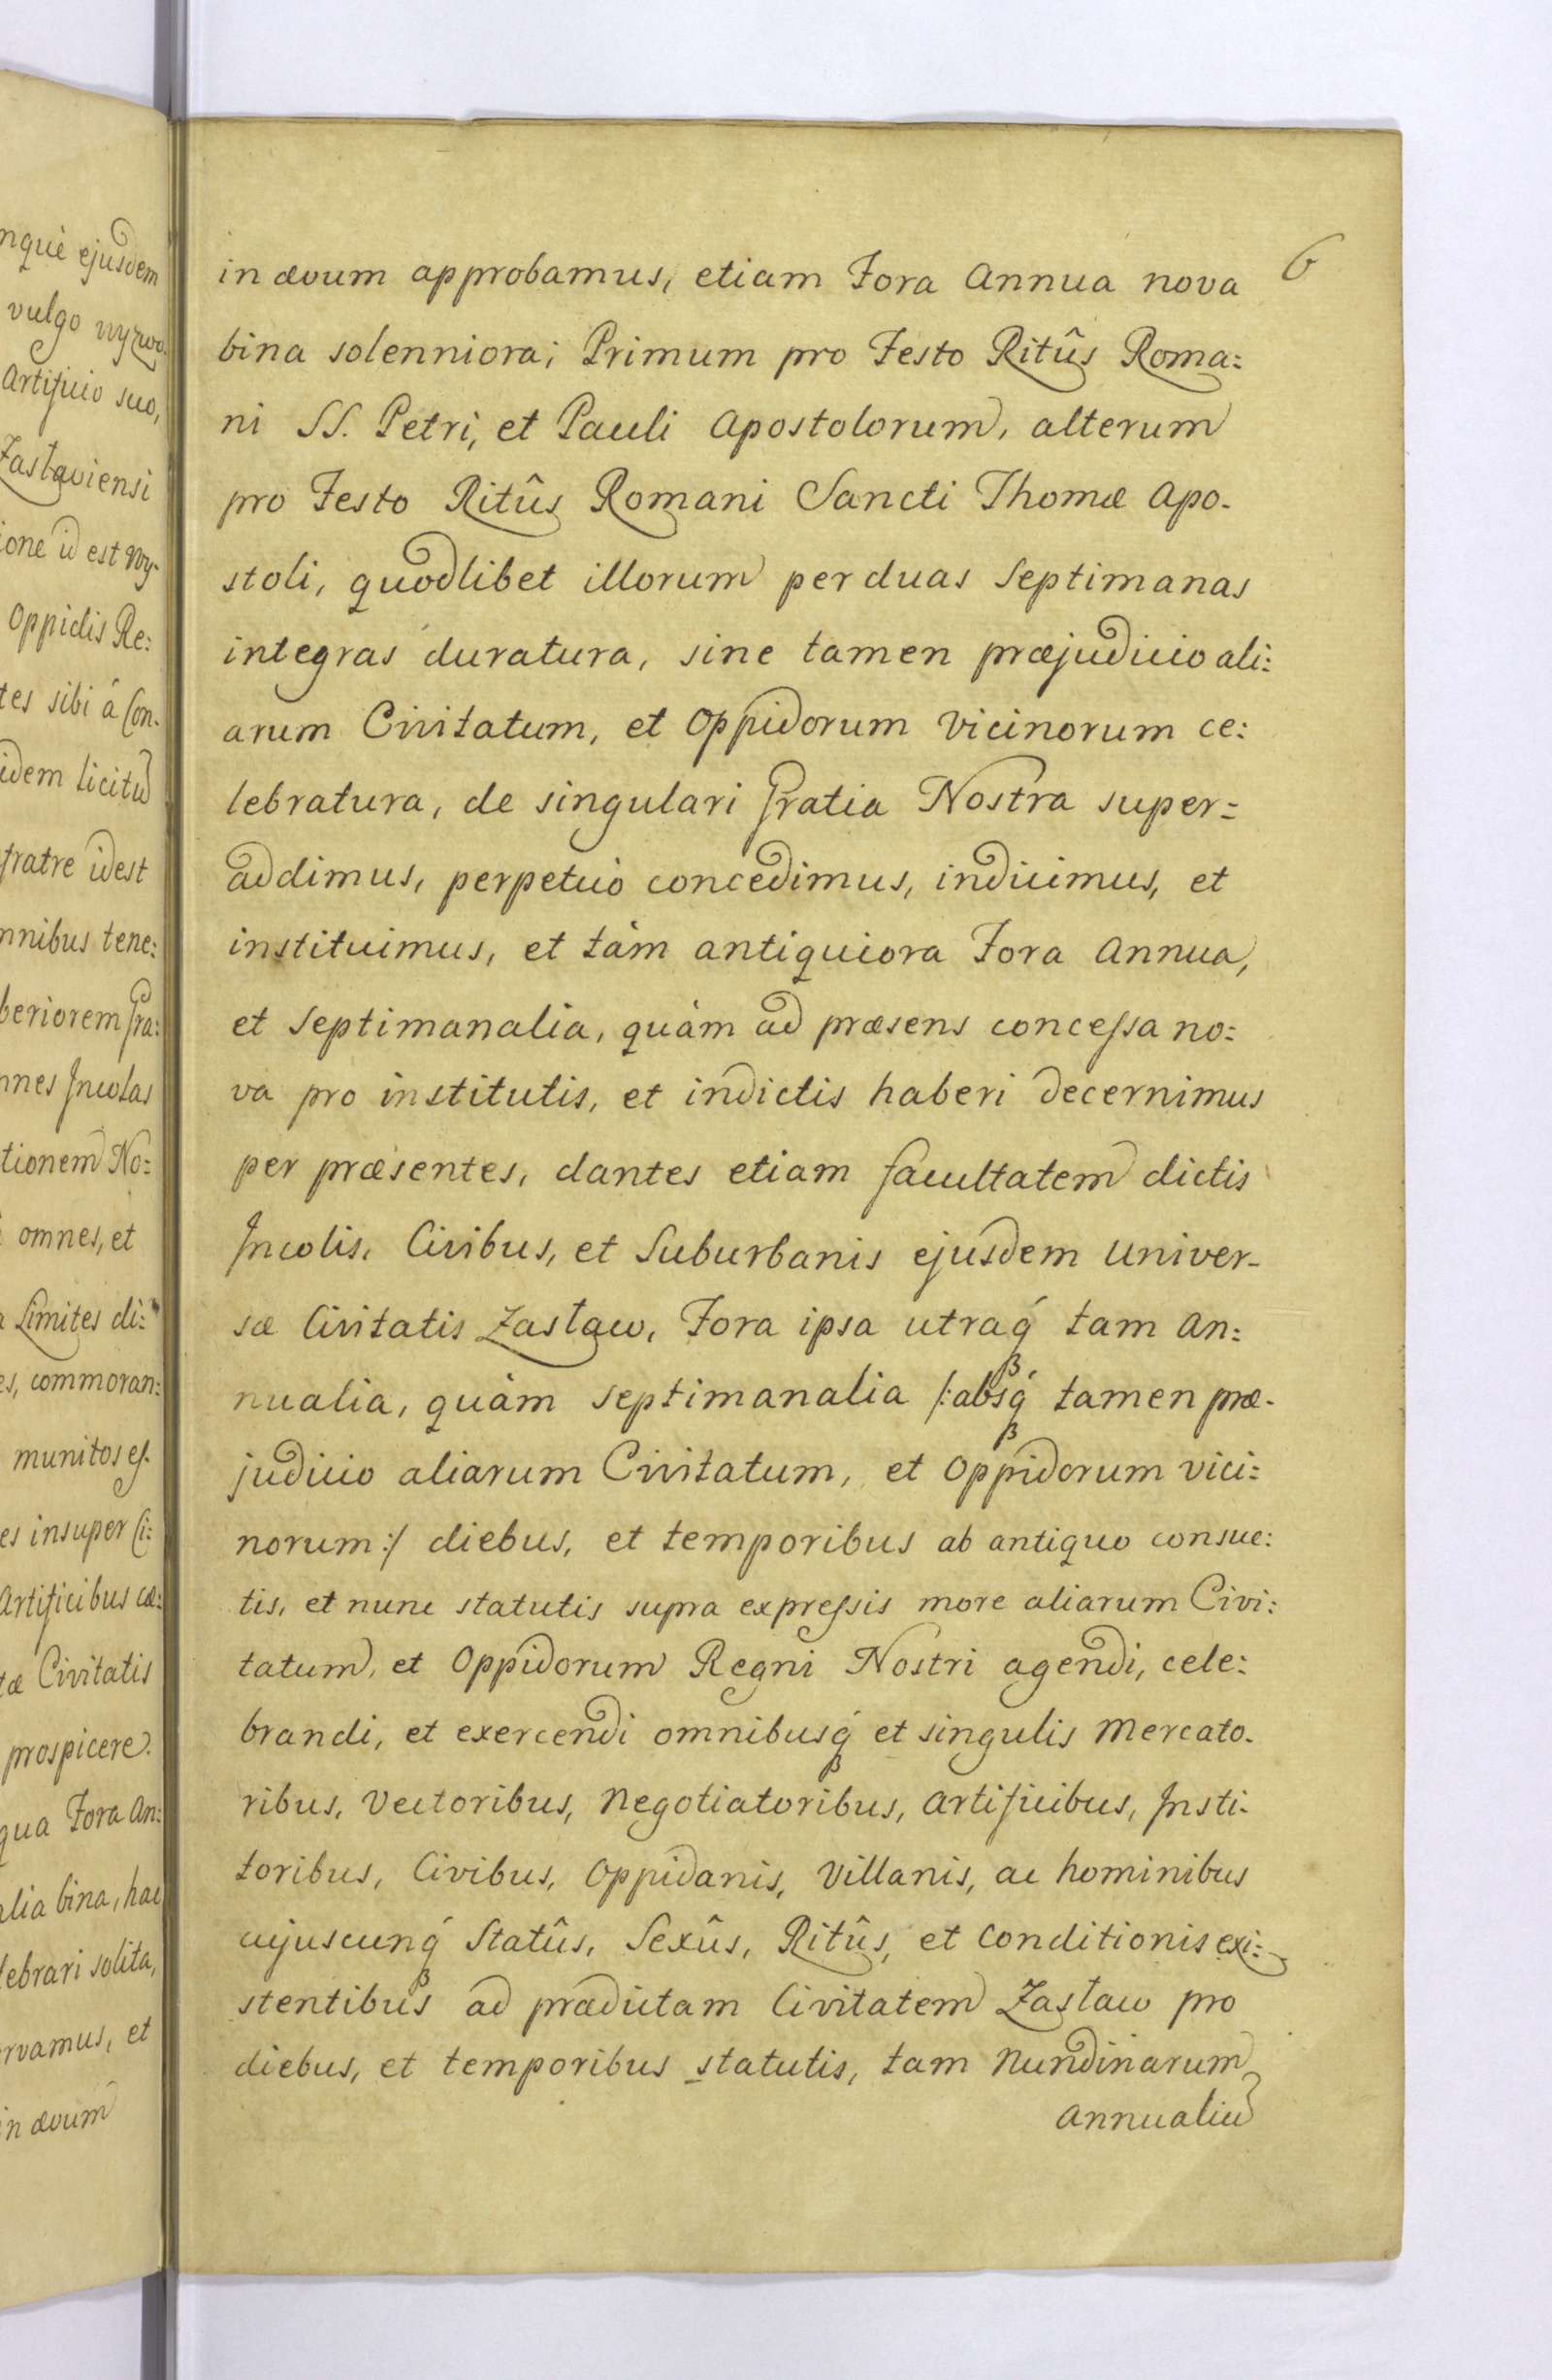 nquè ejusdem
vulgo wyzwo
Artificio suo,
Zaslaviensi
ione id est wy-
Oppidis Re:
tes sibi â Con-
idem licitu
fratre idest
nnibus tene:
beriorem Gra:
nnes Incolas
tionem No:
omnes, et
Limites di:
es, commoran:
munitos es-
es insuper Ci:
Artificibus cæ:
tæ Civitatis
prospicere.
qua Fora An:
alia bina, hac
lebrari solita,
rvamus, et
in ævum
6
in ævum approbamus, etiam Fora Annua nova
bina solenniora; Primum pro Festo Ritûs Roma:
ni SS. Petri, et Pauli Apostolorum, alterum
pro Festo Ritûs Romani Sancti Thomæ Apo-
stoli, quodlibet illorum per duas Septimanas
integras duratura, sine tamen præjudicio ali:
arum Civitatum, et Oppidorum vicinorum ce:
lebratura, de singulari Gratia Nostra super=
addimus, perpetuò concedimus, indicimus, et
instituimus, et tàm antiquiora Fora Annua,
et Septimanalia, quàm ad præsens concessa no:
va pro institutis, et indictis haberi decernimus
per præsentes, dantes etiam facultatem dictis
Incolis, Civibus, et Suburbanis ejusdem Univer-
sæ Civitatis Zasław, Fora ipsa utraq́ tam An:
nualia, quàm Septimanalia /:absq́ tamen præ-
judicio aliarum Civitatum, et Oppidorum vici:
norum:/ diebus, et temporibus ab antiquo consue:
tis, et nunc statutis supra expressis more aliarum Civi:
tatum, et Oppidorum Regni Nostri agendi, cele:
brandi, et exercendi omnibusq́ et singulis Mercato-
ribus, Vectoribus, Negotiatoribus, Artificibus, Insti-
toribus, Civibus, Oppidanis, Villanis, ac hominibus
cujuscunq́ Statûs, Sexûs, Ritûs, et Conditionis exi:
stentibus ad prædictam Civitatem Zasław pro
diebus, et temporibus statutis, tam Nundinarum
Annualiu